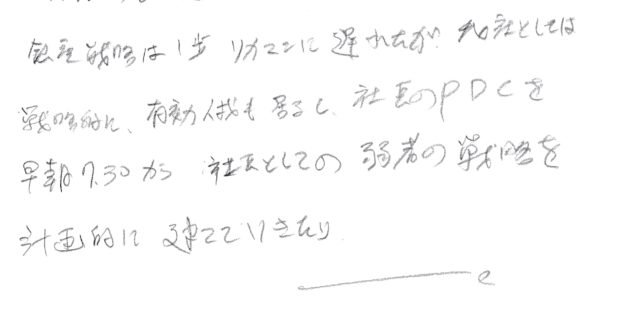 戦略は1歩リコマンに遅れたが、他社としては
戦略的に、有効人哉も居るし、社長のPDCを
早朝7.30から 社長としての弱者の戦略を
計画的に建てていきたい